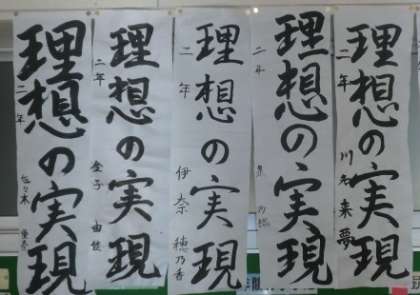 理想の実現
二年
川
来夢
理想の実現
二年
理想の実現
二年
伊奈
穂乃香
理想の実現
二年
金子
由
理想の実現
二年
佐々木